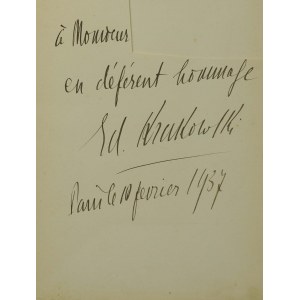 à Monsieur
en déférent hommage
Ed. Krakowski
Paris le 10 février 1937